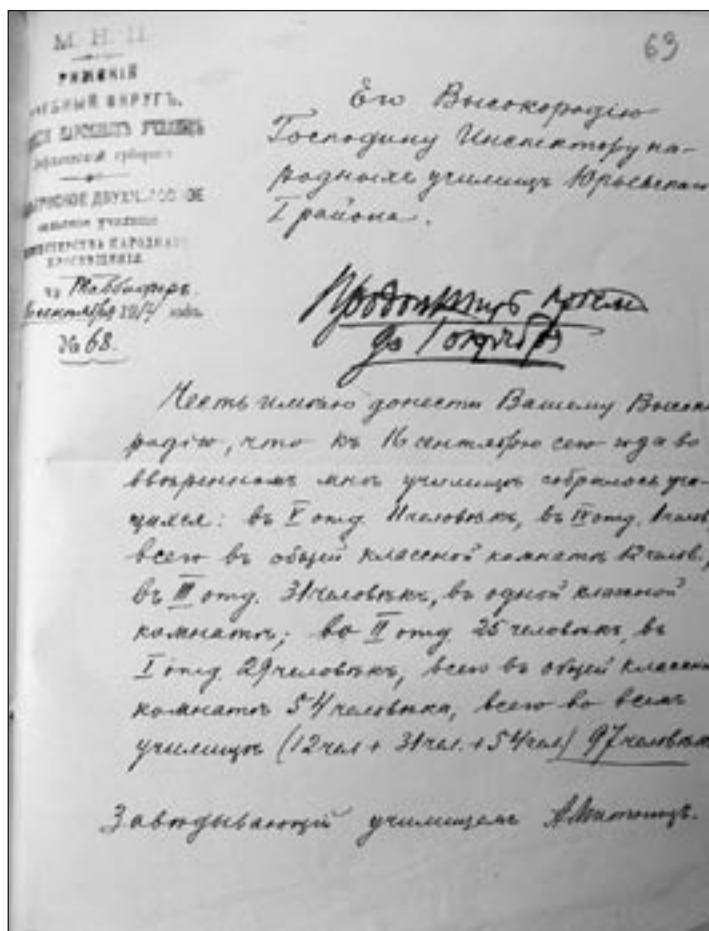 63
М. Н. П.
РИЖСКІЙ
УЧЕБНЫЙ ОКРУГЪ.
губерніи
ДВУХКЛАССНОЕ
сельское училище
МИНИСТЕРСТВА НАРОДНАГО
ПРОСВѢЩЕНІЯ.
сентября 1917 года
№ 68.
Его Высокородію
Господину Инспектору на-
родныхъ училищъ Юрьевскаго
I района.
до 1 октября
Честь имѣю донести Вашему Высоко
родію, что къ 16 сентябрю сего года во
ввѣренномъ мнѣ училищѣ собралось уча-
щихся: въ V отд. 11 человѣкъ, въ IV отд. 1 челов.,
всего въ общей классной комнатѣ 12 челов.,
въ III отд. 31 человѣкъ, въ одной классной
комнатѣ; во II отд. 25 человѣкъ, въ
I отд. 29 человѣкъ, всего въ общей классн
комнатѣ 54 человѣка, всего во всемъ
училищѣ (12 чел + 31 чел. + 54 чел) 97 человѣкъ
Завѣдывающій училищемъ